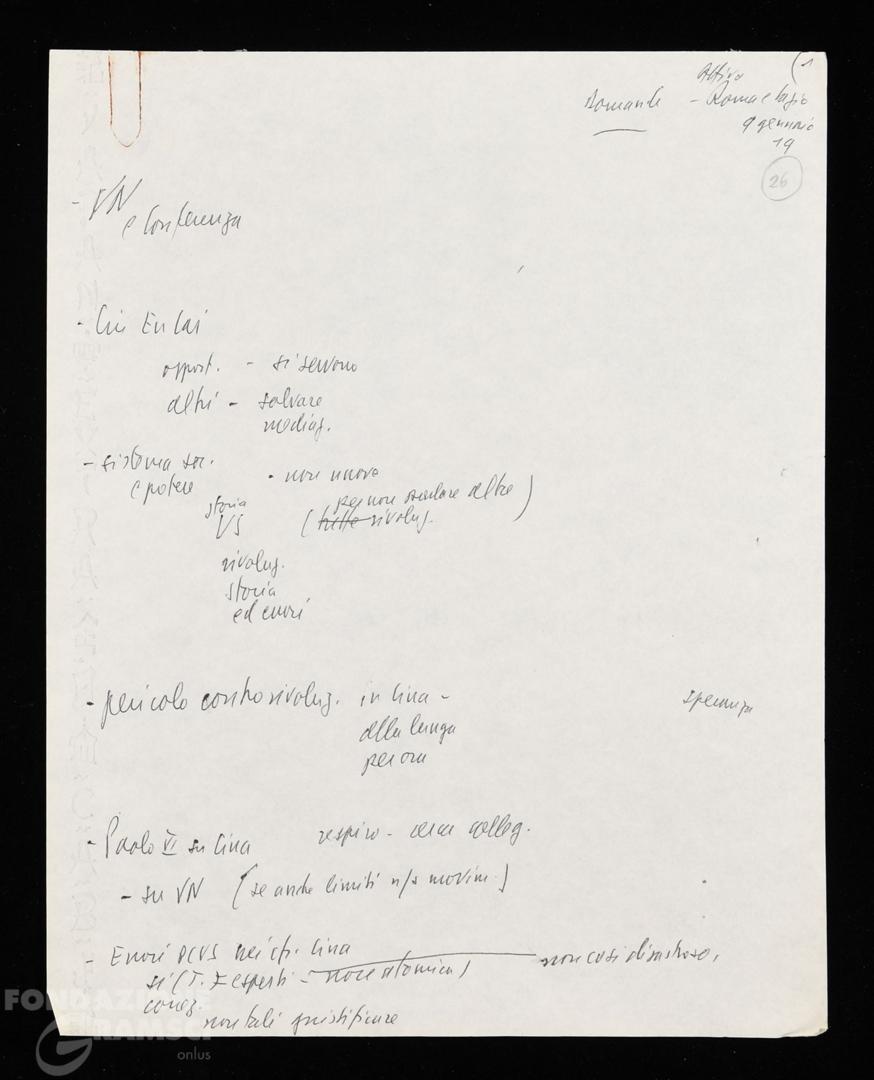 (1
Attivo
Domande - Roma e Lazio
9 gennaio
19
26
- VN
e Conferenza
- Ciu En Lai
oppost. - si servono
altri - salvare
mediaz.
- sistema soc.
e potere
- non nuove
storia
VS
per non oscurare altre)
(tutte rivoluz.
rivoluz.
storia
ed errori
- pericolo controrivoluz. in Cina -
alla lunga
per ora
speranza
- Paolo VI su Cina
respiro - cerca colleg.
- su VN (se anche limiti n/s movim.)
- Errori PCUS nei cfr. Cina
non così disastroso.
si (T. esperti - non atomica)
conseg.
non tali giustificare
FONDAZIONE
GRAMSCI
onlus